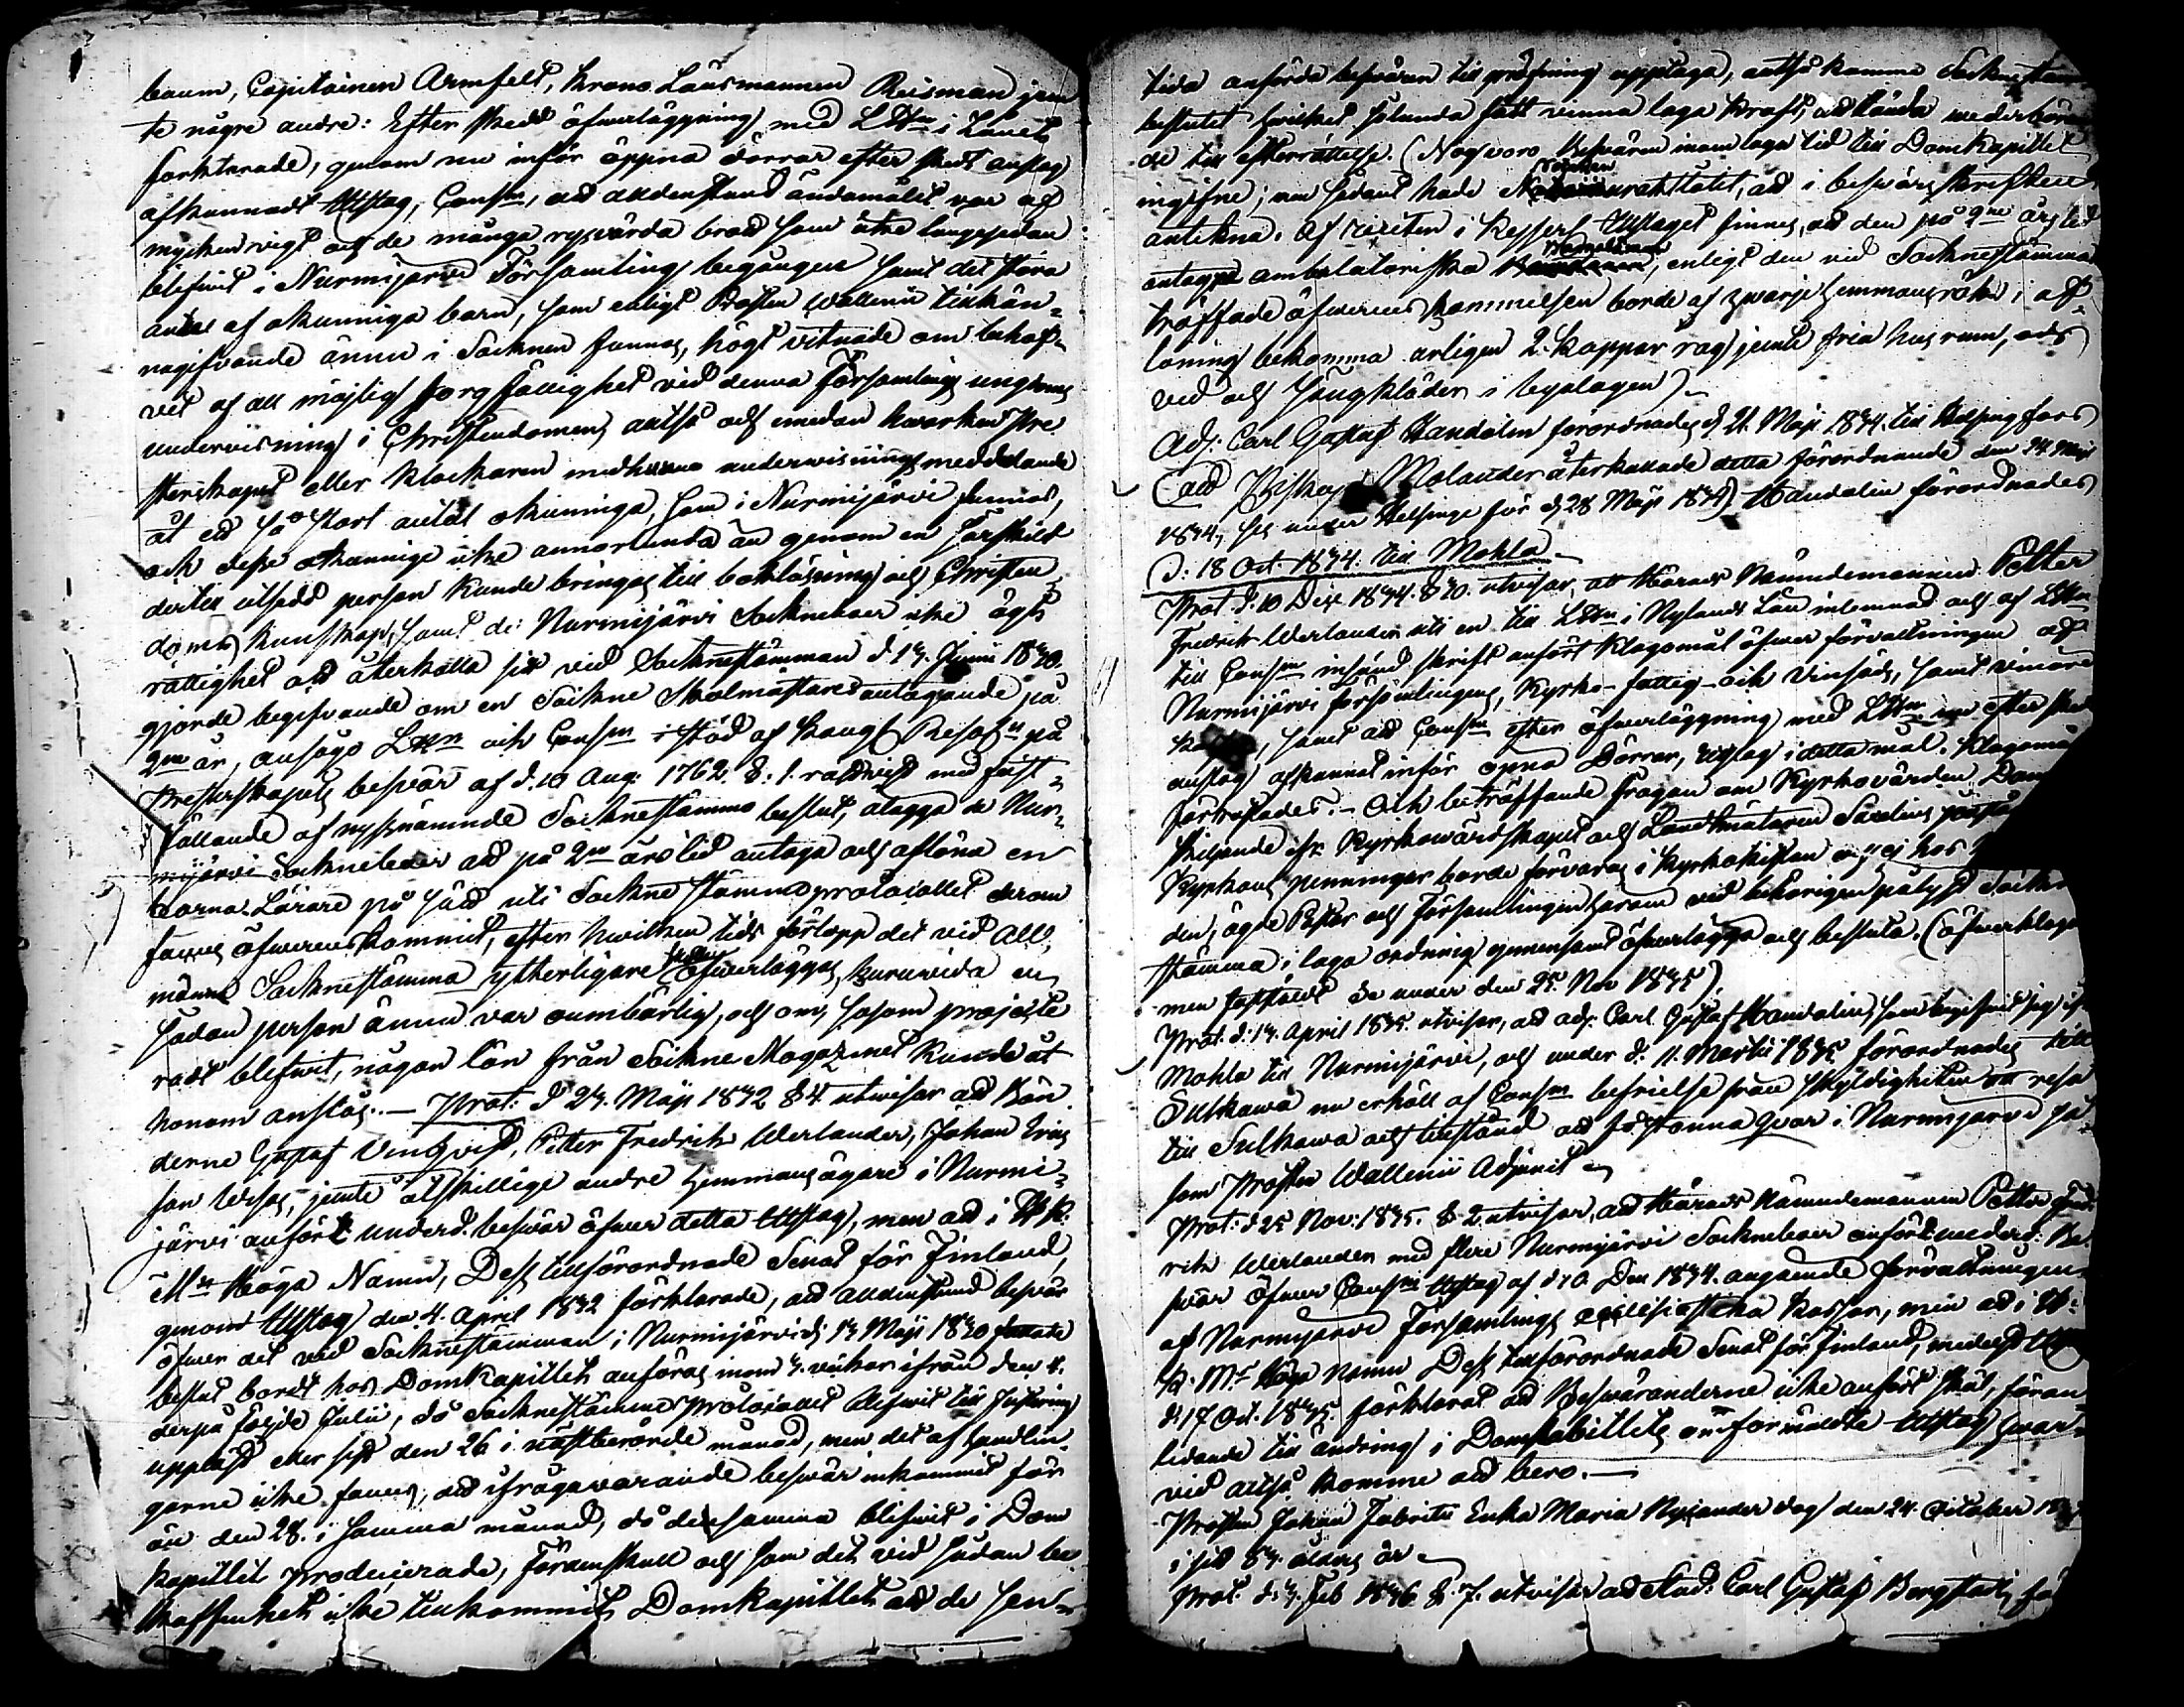 baum, Capitainen Armfelt, Krono Länsmannen Reisman jem
te några andre: Efter skedd öfverläggning med LHn i Länet
förklarade, genom nu inför öppna dörrar efter skedt anslag
afkunnadt Utslag, Consm, att alldenstund ändamålet var af
mycken vigt och de många rysvärda brott som
blifvit i Nurmijärvi Församling begångne samt det stora
antal af okunniga barn, som enligt Prosten Wallenii tillkän-
nagifvande ännu i Socknen funnos, högt vitnade om behof-
vet af all möjlig sorgfällighet vid denna Församlings ungdoms
undervisning i Christendomen, altså och emedan hvarken Pre
sterskapet eller Klockaren medhunno undervisnings meddelande
åt ett så stort antal okunniga, som i Nurmijärvi funnos,
och desse okunnige icke annorlunda än genom en särskild
dertill utsedd person kunde bringas till bokläsning och Christen
doms kunskap, samt de: Nurmijärvi Sockneboer icke ägt
rättighet att återkalla sitt vid Socknestämman d. 13. Junii 1830.
gjorde begifvande om en Sockne Skolmästares antagande på
2ne år, ansågo LHn och Consm i stöd af Kongl Resoln på
Presterskapets besvär af d. 10 Aug: 1762. §: 1. rådvist med fast-
ställande af nyssnämnde Sockneståmmo beslut, ålägga de Nur-
mijärvi Sockneboer att på 2ne års tid antaga och aflöna en
Barna-Lärare på sätt uti Sockne stämmoprotocollet derom
fanns öfverenskommit, efter hvilken tids förlopp det vid All,
männe Socknestämma ytterligare öfverläggas, huruvida en
sådan person ännu var oumbärlig, och om, såsom projecte
radt blifvit, någon lön från Sockne Magazinet kunde åt
honom anslås. — Prot: d 23. Maji 1832 § 4 utvisar att Bön
derne Gustaf Vinqvist, Petter Fredrik Werlander, Johan Eric
son Uhas, jemte åtskillige andre Hemmans ägare i Nurmi-
järvi anfört underd. besvär öfver detta Utslag, men att i H: K:
Mts Höga Namn, Dess tillförordnade Senat för Finland,
genom Utslag den 4. April 1832 förklarade, att alldenstund besvär
öfver det vid Socknestämman i Nurmijärvi d. 13 Maji 1830 fattade
beslut bordt hos DomKapitlet anföras inom 3. veckor ifrån den 4.
derpå följde Julii, då Sockneståmmoprotocollet blifvit till justering
uppläst eller sist den 26 i nästberörde månad, men det af handlin
garne icke fanns, att ifrågavarande besvär inkommit för
än den 28. i samma månad, då desamma blifvit i Dom
kapitlet producerade, Fördenskull och som det vid sådan be
skaffenhet icke tillkommit DomKapitlet att de sen-
tida anförda besvären till pröfning upptaga, altså komme Sockneståmmo
beslutet hvilket sålunda fått vinna laga Kraft, att lända vederböran
de till efterrättelse. (Nog voro Besvären inom laga tid till DomKapitlet
ingifne; men sådant hade Senaten uraktlåtit, att i besvärsskriften
antekna. Af riciten i Kejserl Utslaget finnes, att den på 2ne års tid
antagne ambulatoriska Barnaläraren, enligt den vid Socknestämman
träffade öfverenskommelsen borde af hvarje Hemmans rök i af-
löning bekomma årligen 2. kappar råg jemte fria husrum, och
ved och Sängkläder i byalagen)
Adj: Carl Gustaf Handolin förordnades d 21. Maji 1834. till Helsingfors
(att Biskop Molander återkallade detta förordnande den 24 Maji
1834, se under Helsinge för d 28 Maji 1834). Handolin förordnades
d: 18 Oct: 1834. till Mohla
Prot. d. 10 Dec 1834. § 20. utvisar, att Härads Nämndemannen Petter
Fredrik Werlander uti en till LHn i Nylands Län inlemnad och af LHn
till Consm insänd skrift anfört Klagomål öfver förvaltningen af
Nurmijärvi församlingens, Kyrko- fattig- och Vinsäds, samt
, samt att Consm efter öfverläggning med LHn nu efter skedt
anslag afkunnat inför öpna Dörrar, Utslag i detta mål. Klagomå
förkastades. — Och beträffande frågan om Kyrkovärden
skiljande ifr. Kyrkowärdskapet och Landtmätaren
Kyrkans penningar borde förvaras i Kyrkokistan och ej hos
den, ägde Pastor och Församlingen härom vid behörigen pålyst Sockne
stämma i laga ordning gemensamt öfverlägga och besluta. (öfverklaga
men fastställt se under den 25 Nov 1835)
Prot. d: 13. April 1835. utvisar, att adj. Carl Gustaf Handolin, som begifvit sig ifr
Mohla till Nurmijärvi, och under d: 11. Martii 1835 förordnades till
Sulkawa nu erhåll af Consm befrielse från skyldigheten att resa
till Sulkawa och tillstånd att få stanna qvar i Nurmijärvi så
som Prosten Wallenii Adjunct
Prot: d 25 Nov: 1835. § 2 utvisar, att Härads Nämndemannen Petter Fred
rik Werlander med flere Nurmijärvi Sockneboer anfört underd: Be
svär öfver Consm Utslag af d 10 Dec 1834. angående förvaltningen
af Nurmijärvi Församlings ecclesiastika Kassor, men att i H:
K. Mts Höga Namn Dess tillförordnade Senat för Finland, medelst Utslag
d: 17 Oct. 1835. förklarat att Besvärenderne icke anfört skäl, föran
ledande till ändring i DomKapitlets omförmäldte Utslag hvar-
vid altså komme att bero. —
Prosten Johan Fabritii Enka Maria Nylander dog den 24. October 1835
i sitt 83. ålders år
Prot. d: 3. Feb 1836 § 7. utvisar att Stud: Carl Gustaf Bergstad, få